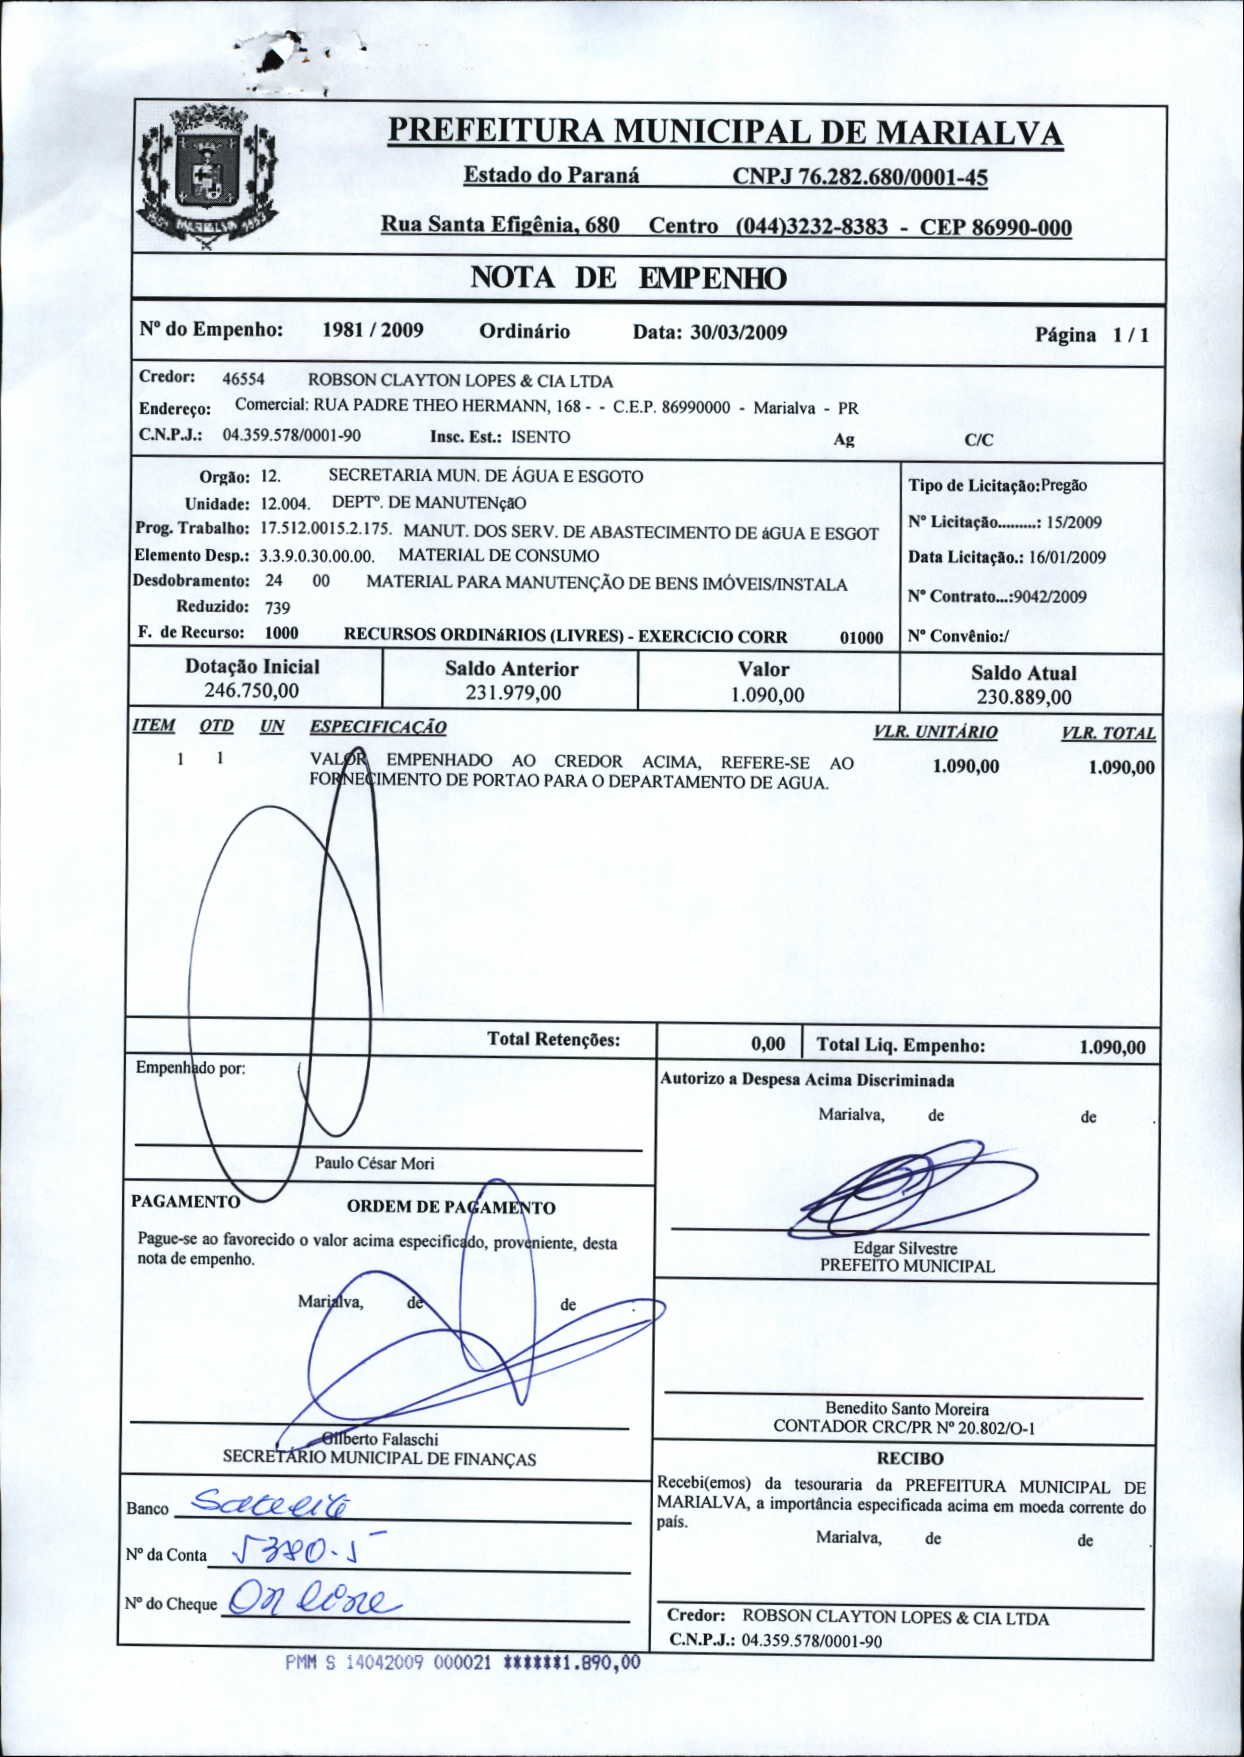 PREFEITURA MUNICIPAL DE MARIALVA
Estado do Paraná CNPJ 76.282.680/0001-45
Rua Santa Efigênia, 680 Centro (044)3232-8383 - CEP 86990-000
NOTA DE EMPENHO
Nº do Empenho: 1981 / 2009 Ordinário Data: 30/03/2009 Página 1 / 1
Credor: 46554 ROBSON CLAYTON LOPES & CIA LTDA
Endereço: Comercial: RUA PADRE THEO HERMANN, 168 - - C.E.P. 86990000 - Marialva - PR
C.N.P.J.: 04.359.578/0001-90 Insc. Est.: ISENTO Ag C/C
Orgão: 12. SECRETARIA MUN. DE ÁGUA E ESGOTO
Unidade: 12.004. DEPTº. DE MANUTENçãO
Prog. Trabalho: 17.512.0015.2.175. MANUT. DOS SERV. DE ABASTECIMENTO DE áGUA E ESGOT
Elemento Desp.: 3.3.9.0.30.00.00. MATERIAL DE CONSUMO
Desdobramento: 24 00 MATERIAL PARA MANUTENÇÃO DE BENS IMÓVEIS/INSTALA
Reduzido: 739
F. de Recurso: 1000 RECURSOS ORDINáRIOS (LIVRES) - EXERCíCIO CORR 01000
Tipo de Licitação:Pregão
Nº Licitação.........: 15/2009
Data Licitação.: 16/01/2009
Nº Contrato...:9042/2009
Nº Convênio:/
Dotação Inicial Saldo Anterior Valor Saldo Atual
246.750,00 231.979,00 1.090,00 230.889,00
ITEM QTD UN ESPECIFICAÇÃO VLR. UNITÁRIO VLR. TOTAL
1 1 VALOR EMPENHADO AO CREDOR ACIMA, REFERE-SE AO 1.090,00 1.090,00
FORNECIMENTO DE PORTAO PARA O DEPARTAMENTO DE AGUA.
Total Retenções: 0,00 Total Liq. Empenho: 1.090,00
Empenhado por:
Paulo César Mori
Autorizo a Despesa Acima Discriminada
Marialva, de de .
Edgar Silvestre
PREFEITO MUNICIPAL
PAGAMENTO ORDEM DE PAGAMENTO
Pague-se ao favorecido o valor acima especificado, proveniente, desta
nota de empenho.
Marialva, de de .
Gilberto Falaschi
SECRETÁRIO MUNICIPAL DE FINANÇAS
Benedito Santo Moreira
CONTADOR CRC/PR Nº 20.802/O-1
RECIBO
Recebi(emos) da tesouraria da PREFEITURA MUNICIPAL DE
MARIALVA, a importância especificada acima em moeda corrente do
país.
Marialva, de de .
Credor: ROBSON CLAYTON LOPES & CIA LTDA
C.N.P.J.: 04.359.578/0001-90
Banco Satelite
Nº da Conta 5380-5
Nº do Cheque On line
PMM S 14042009 000021 *******1.890,00